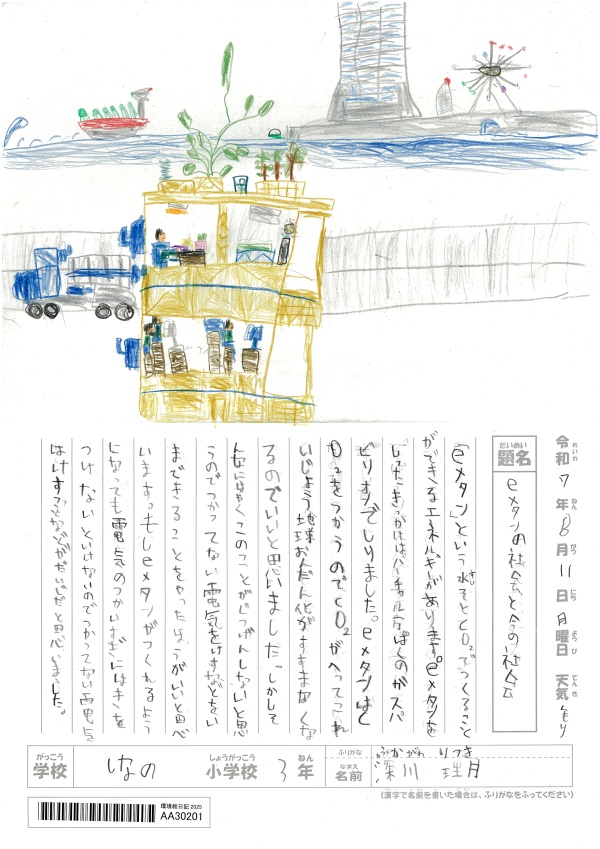 令和 7年 8月 11日 月曜日 天気 くもり
れいわ ねん がつ にち ようび てんき
だいめい
題名 eメタンの社会と今の社会
「eメタン」という水そとCO2でつくること
ができるエネルギーがあります。eメタンを
しったきっかけは、バーチャル万ぱくのガスパ
ビリオンでしりました。eメタンはC
O2をつかうのでCO2がへってこれ
いじょう地球おんだん化がすすまなくな
るのでいいと思いました。しかしそ
んなにはやくこのことがじつげんしないと思
うのでつかってない電気をけすなどをい
までできることをやったほうがいいと思べ
います。もしeメタンがつくれるよう
になっても電気のつかいすぎにはきを
つけないといけないのでつかってない電気
はけすなどがだいじだと思いました。
がっこう しょうがっこう ねん ふりがな ふかがわ りつき
学校 いなの 小学校 3年 なまえ 名前 深川 理月
(漢字で名前を書いた場合は、ふりがなをふってください)
環境絵日記2025
AA30201